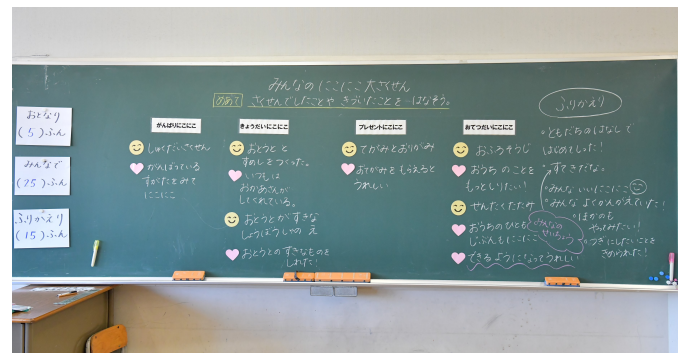 みんなの にこにこ大さくせん
めあて さくせんでしたことや きづいたことを はなそう。
おとなり
(5)ふん
みんなで
(25)ふん
ふりかえり
(15)ふん
がんばりにこにこ
しゅくだいさくせん
がんばっている
すがたをみて
にこにこ
きょうだいにこにこ
おとうとと
すめしをつくった。
いつもは
おかあさんが
してくれている。
おとうとがすきな
しょうぼうしゃの え
おとうとのすきなものを
しれた!
プレゼントにこにこ
てがみとおりがみ
おてがみをもらえると
うれしい
おてつだいにこにこ
おふろそうじ
おうちのことを
もっとしりたい!
せんたくたたみ
おうちのひとも
じぶんもにこにこ
できるようになってうれしい!
みんなの
せいちょう
ふりかえり
ともだちのはなしで
はじめてしった!
すてきだな。
みんな いいにこにこ
みんな よくかんがえていた!
ほかのも
やってみたい!
つぎにしたいことを
きめられた!